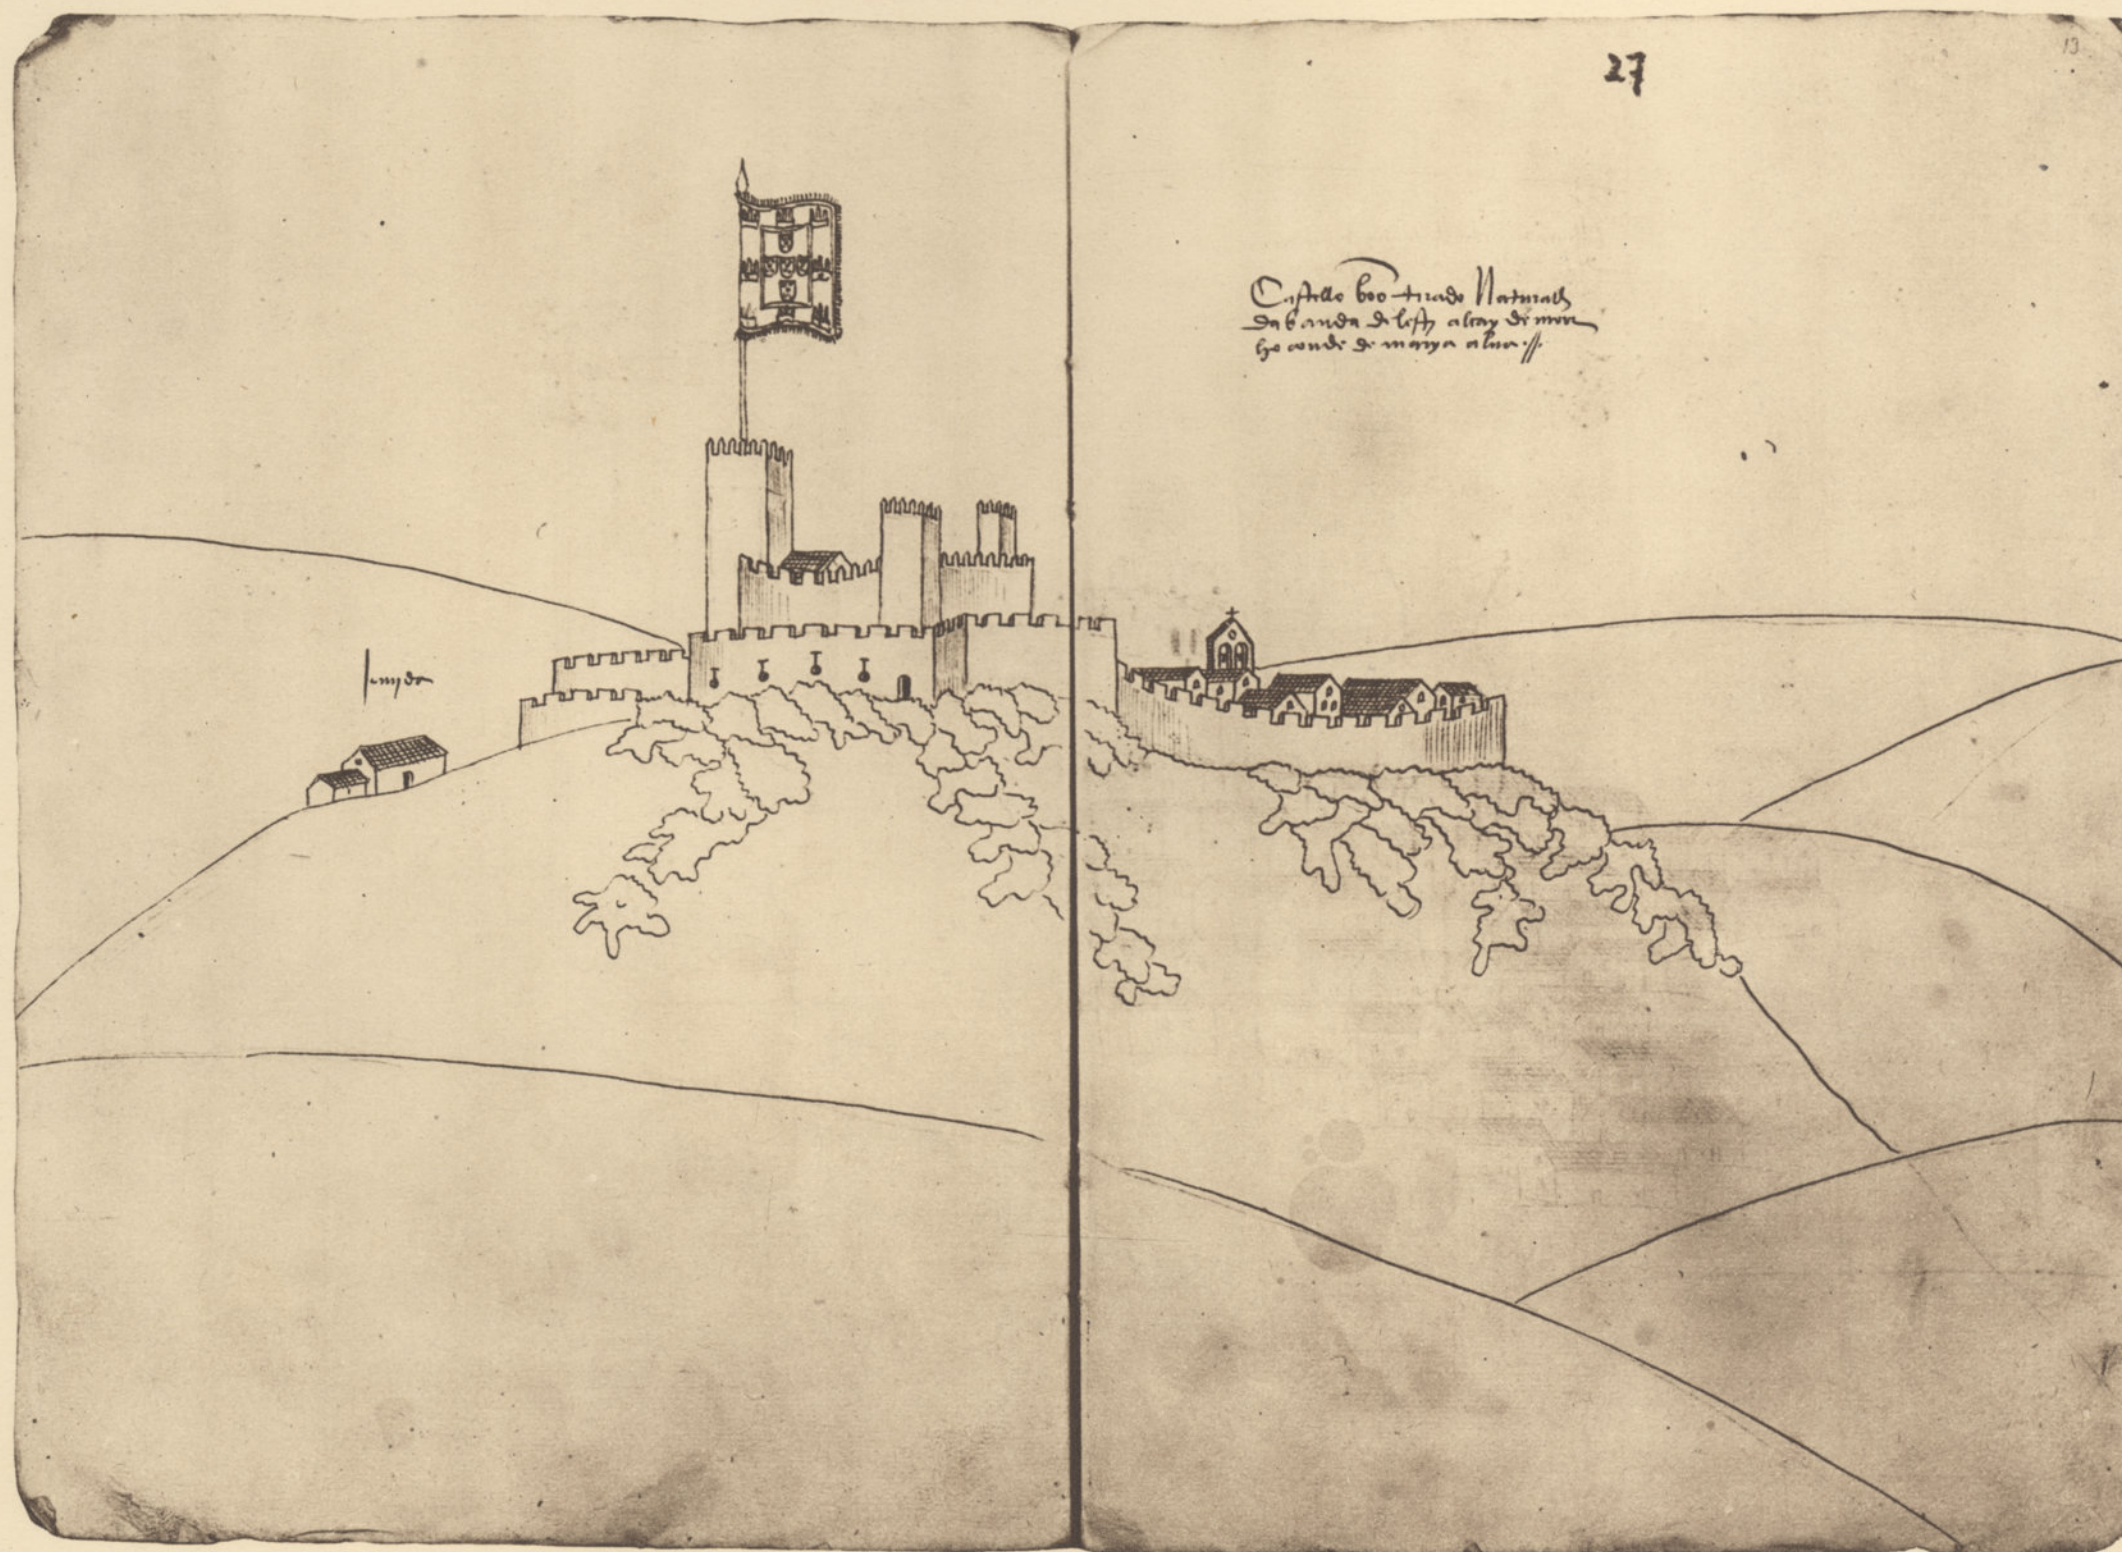 13
27
Castello boo tirado naturall
da banda de leste alcay de mor
ho conde de marya alva